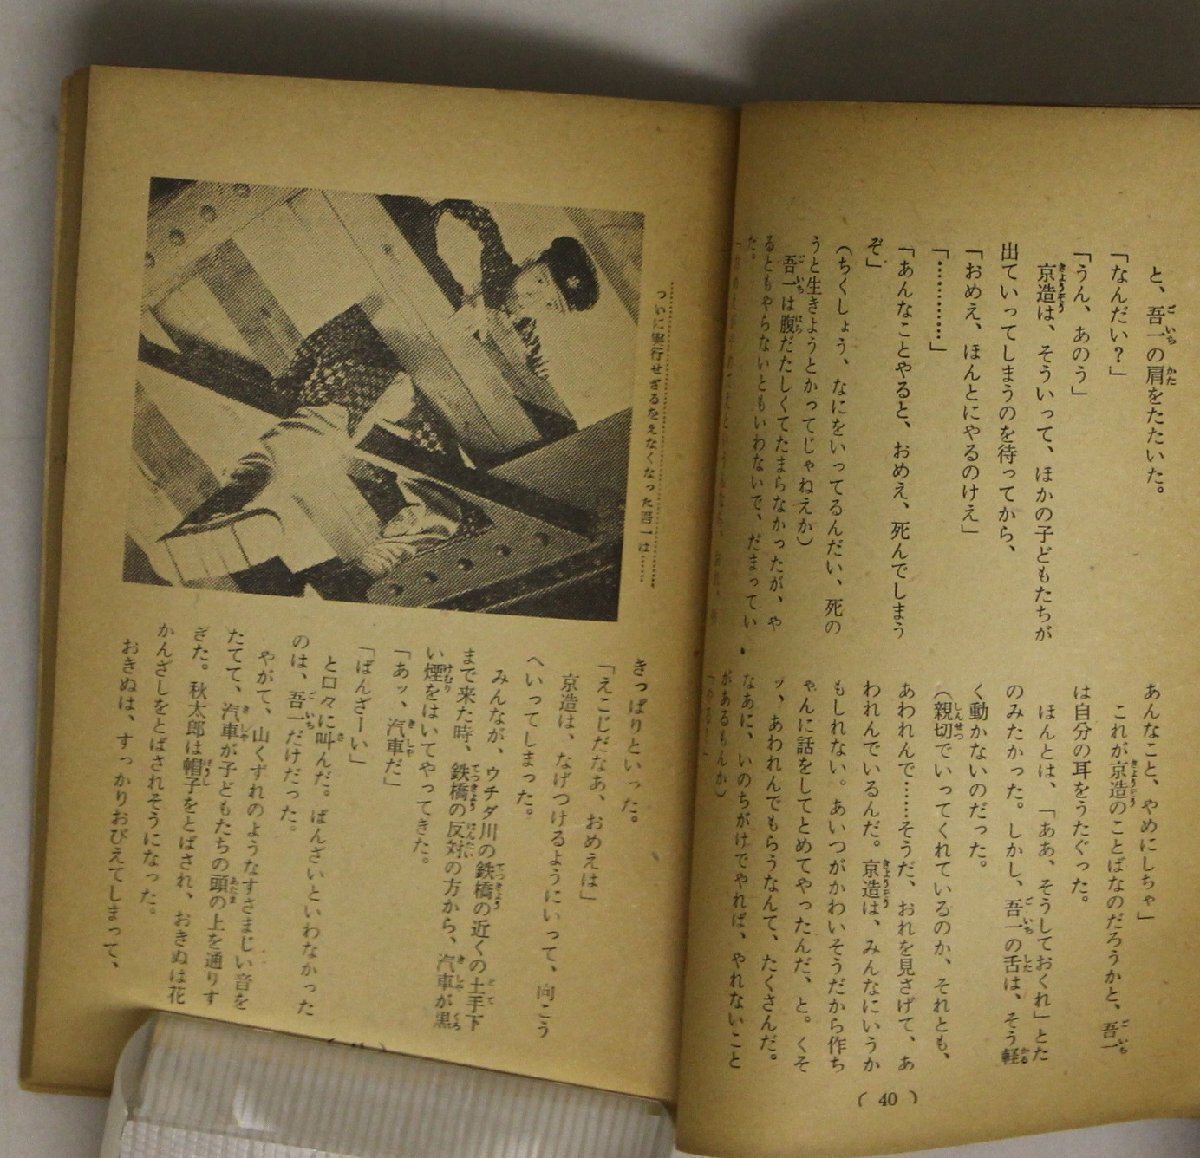 と、吾一の肩をたたいた。
「なんだい?」
「うん、あのう」
京造は、そういって、ほかの子どもたちが
出ていってしまうのを待ってから、
「おめえ、ほんとにやるのけえ」
「…………」
「あんなことやると、おめえ、死んでしまう
ぞ」
(ちくしょう、なにをいってるんだい、死の
うと生きようとかってじゃねえか)
吾一は腹だたしくてたまらなかったが、や
るともやらないともいわないで、だまってい
だ。
あんなこと、やめにしちゃ」
これが京造のことばなのだろうかと、吾一
は自分の耳をうたぐった。
ほんとは、「ああ、そうしておくれ」とた
のみたかった。しかし、吾一の舌は、そう軽
く動かないのだった。
(親切でいってくれているのか、それとも、
あわれんで……そうだ、おれを見さげて、あ
われんでいるんだ。京造は、みんなにいうか
もしれない。あいつがかわいそうだから作ち
ゃんに話をしてとめてやったんだ、と。くそ
ッ、あわれんでもらうなんて、たくさんだ。
なあに、いのちがけでやれば、やれないこと
があるもんか)
「やる!」
(40)
ついに実行せざるをえなくなった吾一は……
きっぱりといった。
「えこじだなあ、おめえは」
京造は、なげつけるようにいって、向こう
へいってしまった。
みんなが、ウチダ川の鉄橋の近くの土手下
まで来た時、鉄橋の反対の方から、汽車が黒
い煙をはいてやってきた。
「あッ、汽車だ」
「ばんざーい」
と口々に叫んだ。ばんざいといわなかった
のは、吾一だけだった。
やがて、山くずれのようなすさまじい音を
たてて、汽車が子どもたちの頭の上を通りす
ぎた。秋太郎は帽子をとばされ、おきぬは花
かんざしをとばされそうになった。
おきぬは、すっかりおびえてしまって、